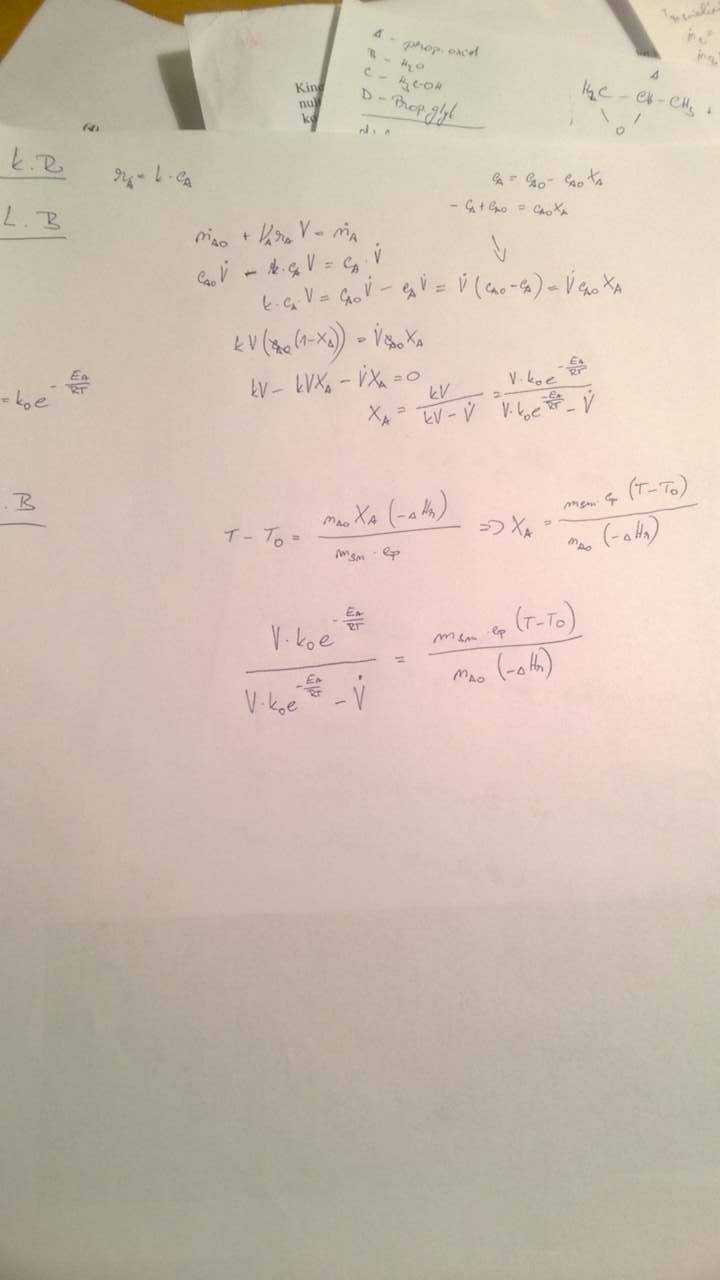 A - prop. oxid
B - H₂O
C - H₃C-OH
D - Prop. glyl
Kine
nul
ko
A
H₂C - CH - CH₃
\ /
O
k.R
r_A = k · c_A
c_A = c_A0 - c_A0 X_A
- c_A + c_A0 = c_A0 X_A
L.B
ṅ_A0 + ν_A r_A V = ṅ_A
c_A0 V̇ - k · c_A V = c_A · V̇
k · c_A · V = c_A0 V̇ - c_A V̇ = V̇ (c_A0 - c_A) = V̇ c_A0 X_A
kV (c_A0 (1 - X_A)) = V̇ c_A0 X_A
= k₀ e^(-E_A/RT)
kV - kVX_A - V̇X_A = 0
X_A = kV / (kV - V̇) = V · k₀ e^(-E_A/RT) / (V · k₀ e^(-E_A/RT) - V̇)
. B
T - T₀ = m_A0 X_A (-ΔH_r) / (m_sm · c_p) => X_A = m_sm · c_p (T - T₀) / (m_A0 (-ΔH_r))
V · k₀ e^(-E_A/RT) / (V · k₀ e^(-E_A/RT) - V̇) = m_sm · c_p (T - T₀) / (m_A0 (-ΔH_r))